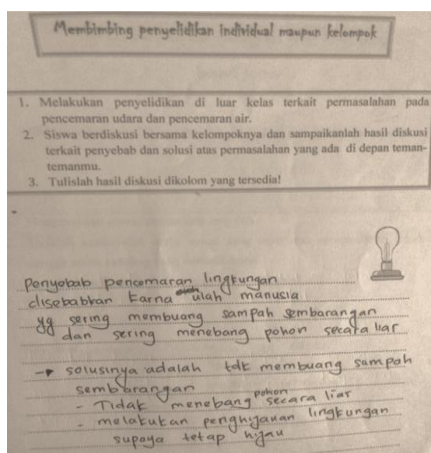 Membimbing penyelidikan individual maupun kelompok
1. Melakukan penyelidikan di luar kelas terkait permasalahan pada
pencemaran udara dan pencemaran air.
2. Siswa berdiskusi bersama kelompoknya dan sampaikanlah hasil diskusi
terkait penyebab dan solusi atas permasalahan yang ada di depan teman-
temanmu.
3. Tulislah hasil diskusi dikolom yang tersedia!
Penyebab pencemaran lingkungan
disebabkan karna ulah manusia
yg sering membuang sampah sembarangan
dan sering menebang pohon secara liar
→ solusinya adalah tdk membuang sampah
sembarangan
- Tidak menebang pohon secara liar
- melakukan penghijauan lingkungan
supaya tetap hijau